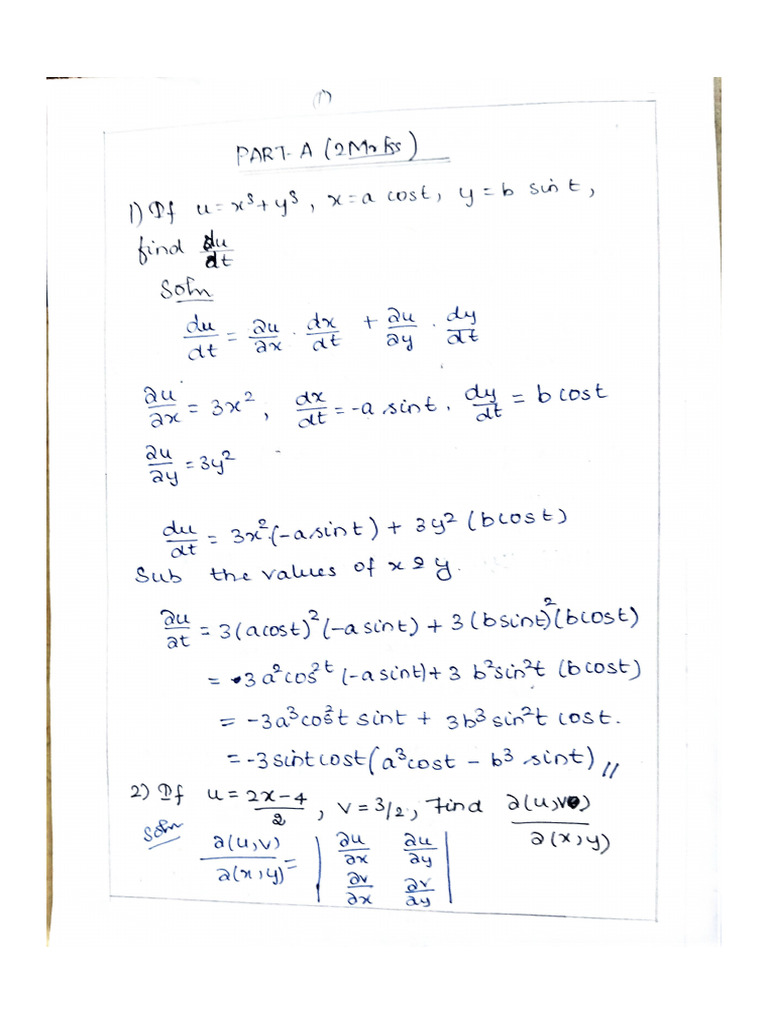 1)
PART-A (2Marks)
1) If u = x³ + y³, x = a cost, y = b sint,
find du/dt
Soln
du/dt = ∂u/∂x · dx/dt + ∂u/∂y · dy/dt
∂u/∂x = 3x², dx/dt = -a sint. dy/dt = b cost
∂u/∂y = 3y²
du/dt = 3x².(-a sint) + 3y² (b cost)
Sub the values of x & y.
∂u/∂t = 3(a cost)² (-a sint) + 3 (b sint)² (b cost)
= 3 a² cos² t (-a sint) + 3 b² sin² t (b cost)
= -3a³ cos² t sint + 3b³ sin² t cost.
= -3 sint cost (a³ cost - b³ sint) //
2) If u = 2x-4/2, v = 3/2, Find ∂(u,v)/∂(x,y)
Soln
∂(u,v)/∂(x,y) = | ∂u/∂x ∂u/∂y |
| ∂v/∂x ∂v/∂y |